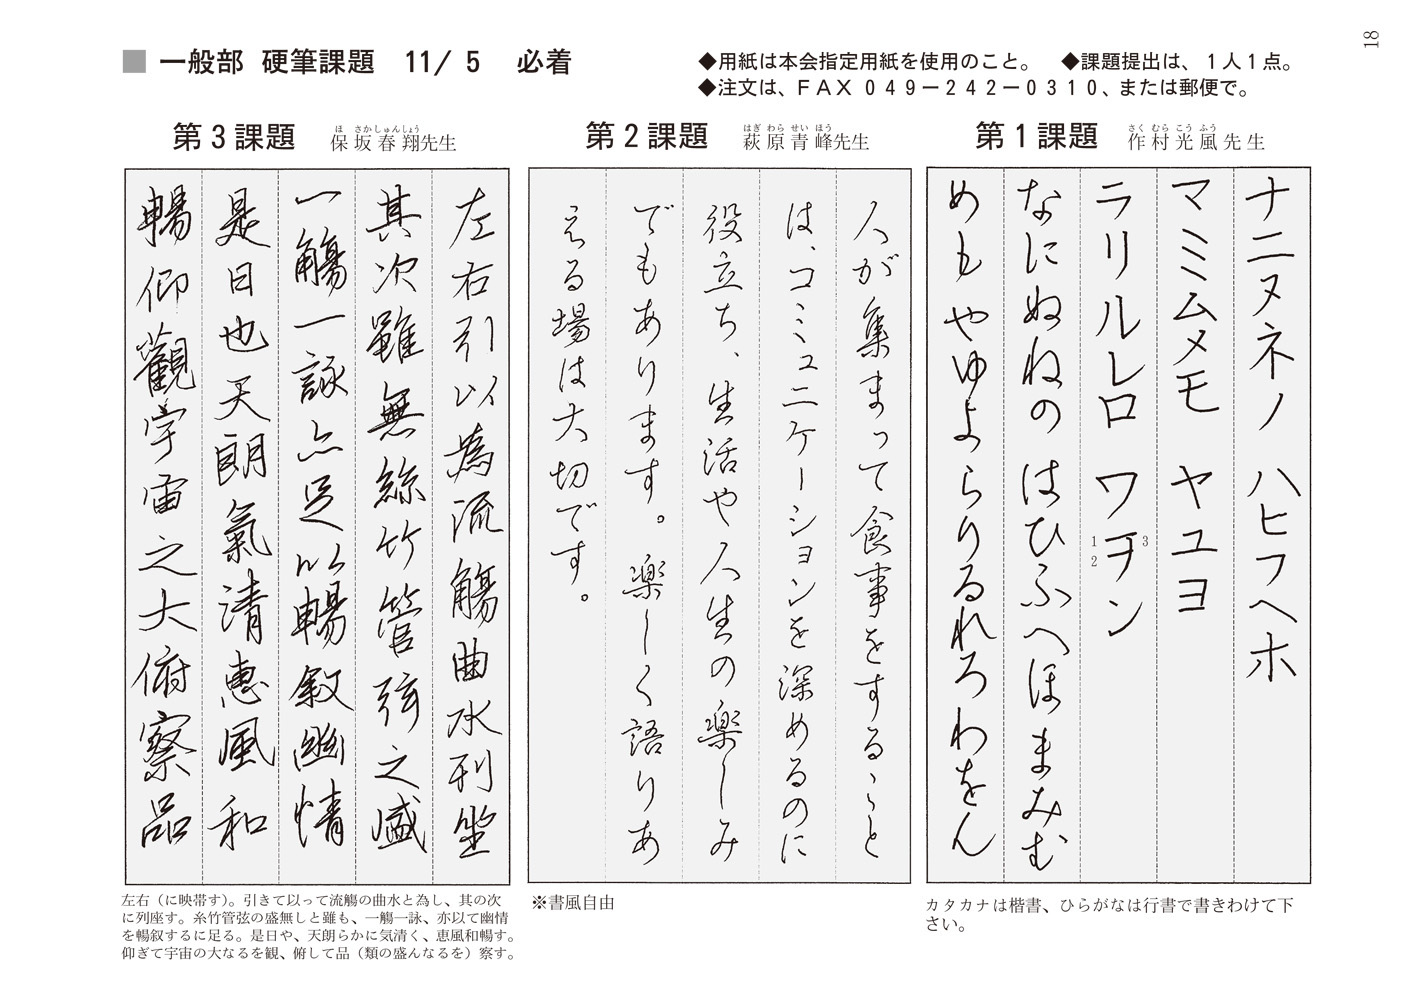 18
■ 一般部 硬筆課題 11/5 必着
◆用紙は本会指定用紙を使用のこと。 ◆課題提出は、1人1点。
◆注文は、FAX 049-242-0310、または郵便で。
第1課題 作村光風先生
さくむらこうふう
ナニヌネノ ハヒフヘホ
マミムメモ ヤユヨ
ラリルレロ ワヲン
1 2 3
なにぬねの はひふへほまみむ
めも やゆよ らりるれろ わをん
カタカナは楷書、ひらがなは行書で書きわけて下
さい。
第2課題 萩原青峰先生
はぎわらせいほう
人が集まって食事をすることと
は、コミュニケーションを深めるのに
役立ち、生活や人生の楽しみ
でもあります。楽しく語りあ
える場は大切です。
※書風自由
第3課題 保坂春翔先生
ほさかしゅんしょう
左右引以為流觴曲水列坐
其次雖無絲竹管弦之盛
一觴一詠亦足以暢敘幽情
是日也天朗氣清惠風和
暢仰觀宇宙之大俯察品
左右（に映帯す）。引きて以って流觴の曲水と為し、其の次
に列座す。糸竹管弦の盛無しと雖も、一觴一詠、亦以て幽情
を暢叙するに足る。是日や、天朗らかに気清く、恵風和暢す。
仰ぎて宇宙の大なるを観、俯して品（類の盛んなるを）察す。